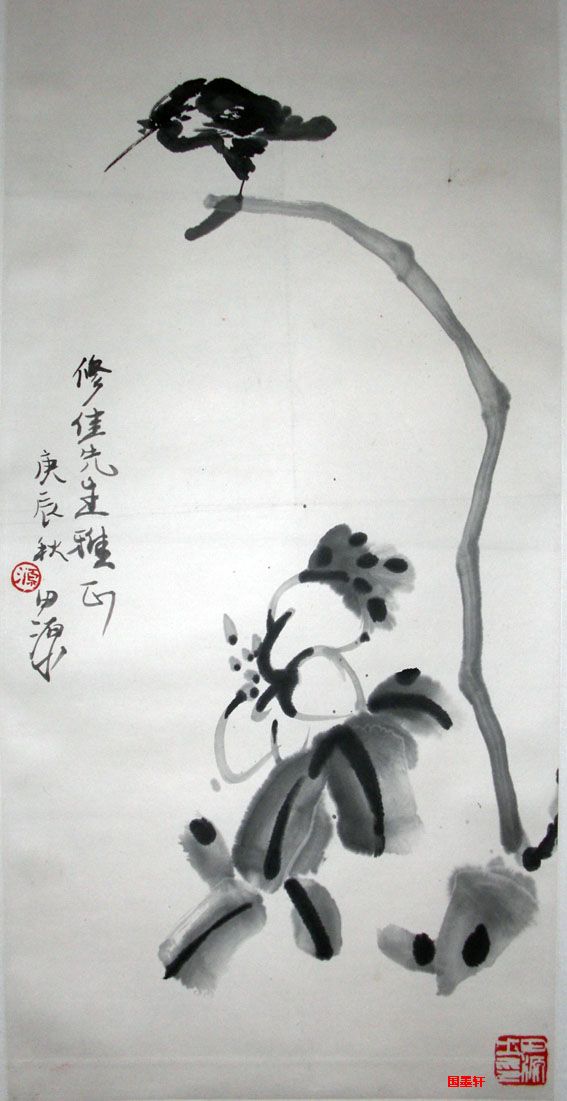 修佳先生雅正
庚辰秋田源
源
田源
国墨轩